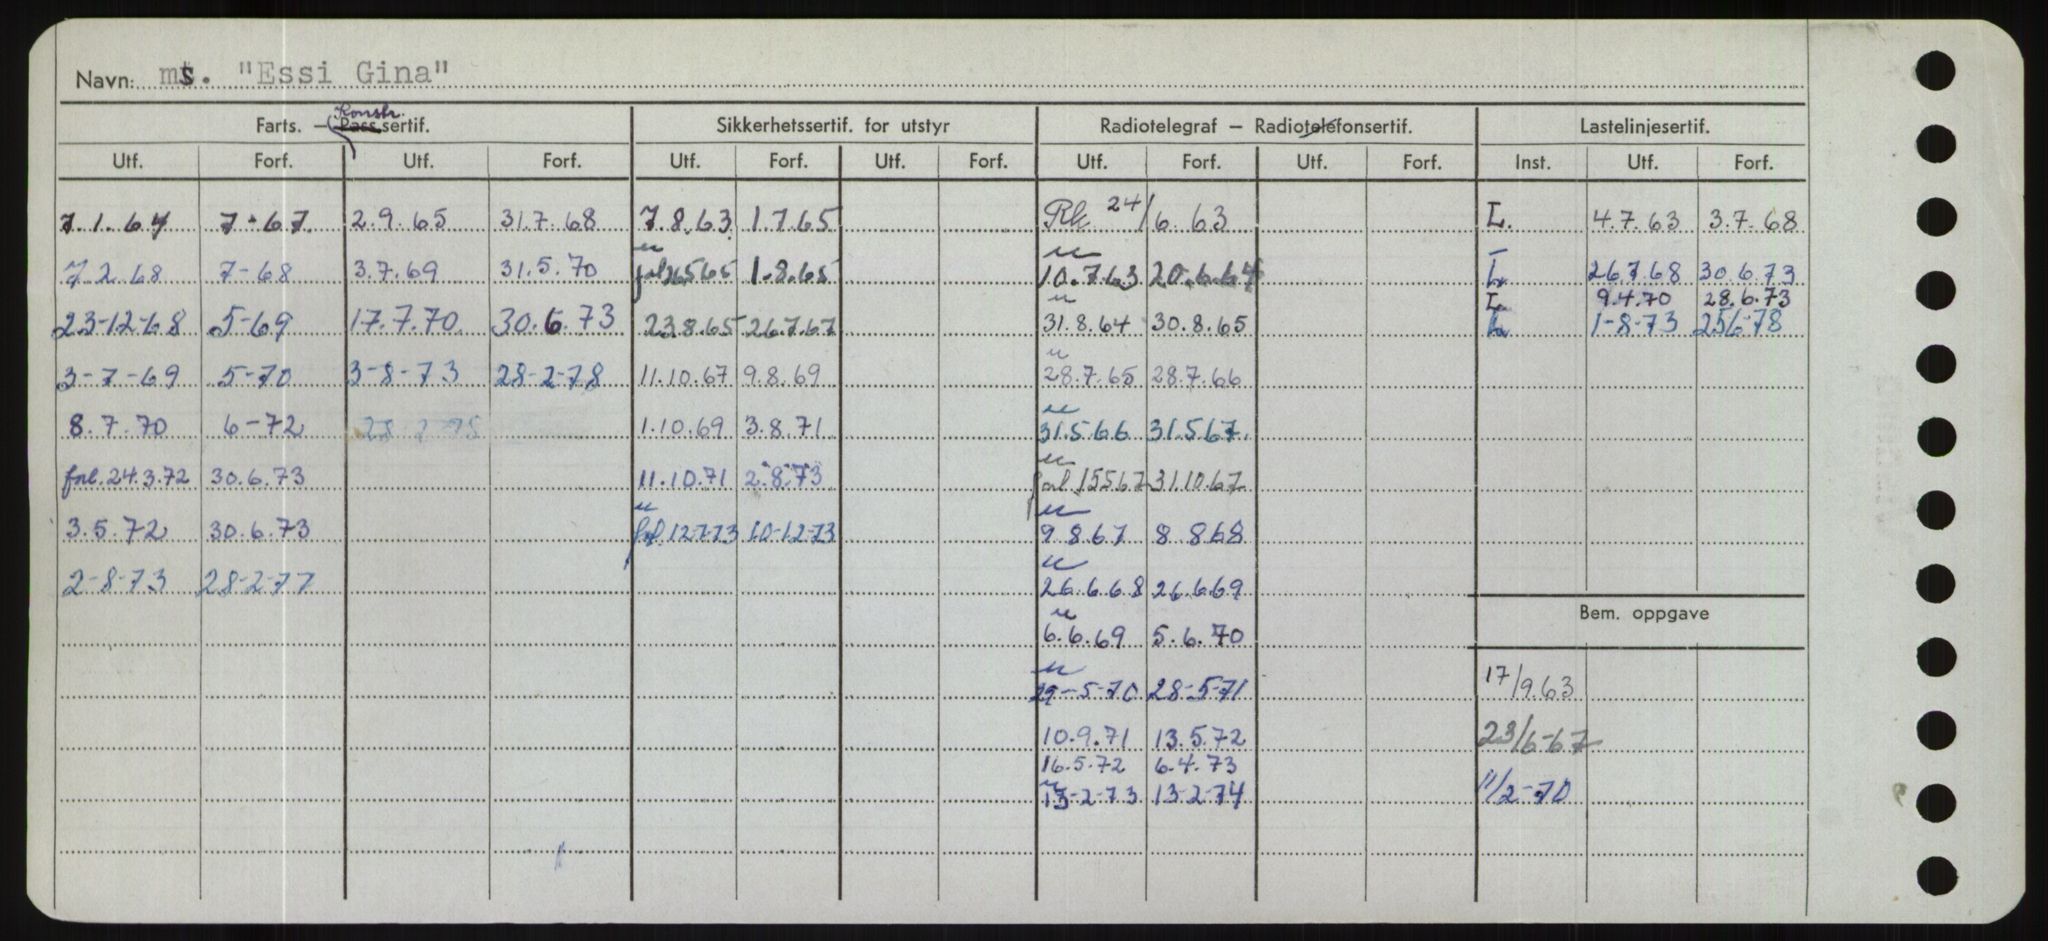 Navn: ms. "Essi Gina"
Konstr.
Farts. – Pass.sertif. Sikkerhetssertif. for utstyr Radiotelegraf – Radiotelefonsertif. Lastelinjesertif.
Utf. Forf. Utf. Forf. Utf. Forf. Utf. Forf. Utf. Forf. Utf. Forf. Inst. Utf. Forf.
7.1.64 7-67 2.9.65 31.7.68 7.8.63 1.7.65 Rk 24/6.63 L. 4.7.63 3.7.68
7.2.68 7-68 3.7.69 31.5.70 forl 26565 1.8.65 10.7.63 20.6.64 L 26.7.68 30.6.73
L. 9.4.70 28.6.73
23-12-68 5-69 17.7.70 30.6.73 23.8.65 26.7.67 31.8.64 30.8.65 L. 1-8-73 256-78
3-7-69 5-70 3-8-73 28-2-78 11.10.67 9.8.69 28.7.65 28.7.66
8.7.70 6-72 28 2-78 1.10.69 3.8.71 31.5.66 31.5.67.
forl. 24.3.72 30.6.73 11.10.71 2.8.73 forl 15567 31.10.67
3.5.72 30.6.73 forl. 12-7-73 10-12-73 9.8.67 8.8.68
2-8-73 28-2-77 26.6.68 26.6.69
6.6.69 5.6.70 Bem. oppgave
29-5-70 28-5-71 17/9.63
10.9.71 13.5.72 23/6-67
16.5.72 6.4.73
13-2-73 13-2-74 11/2-70